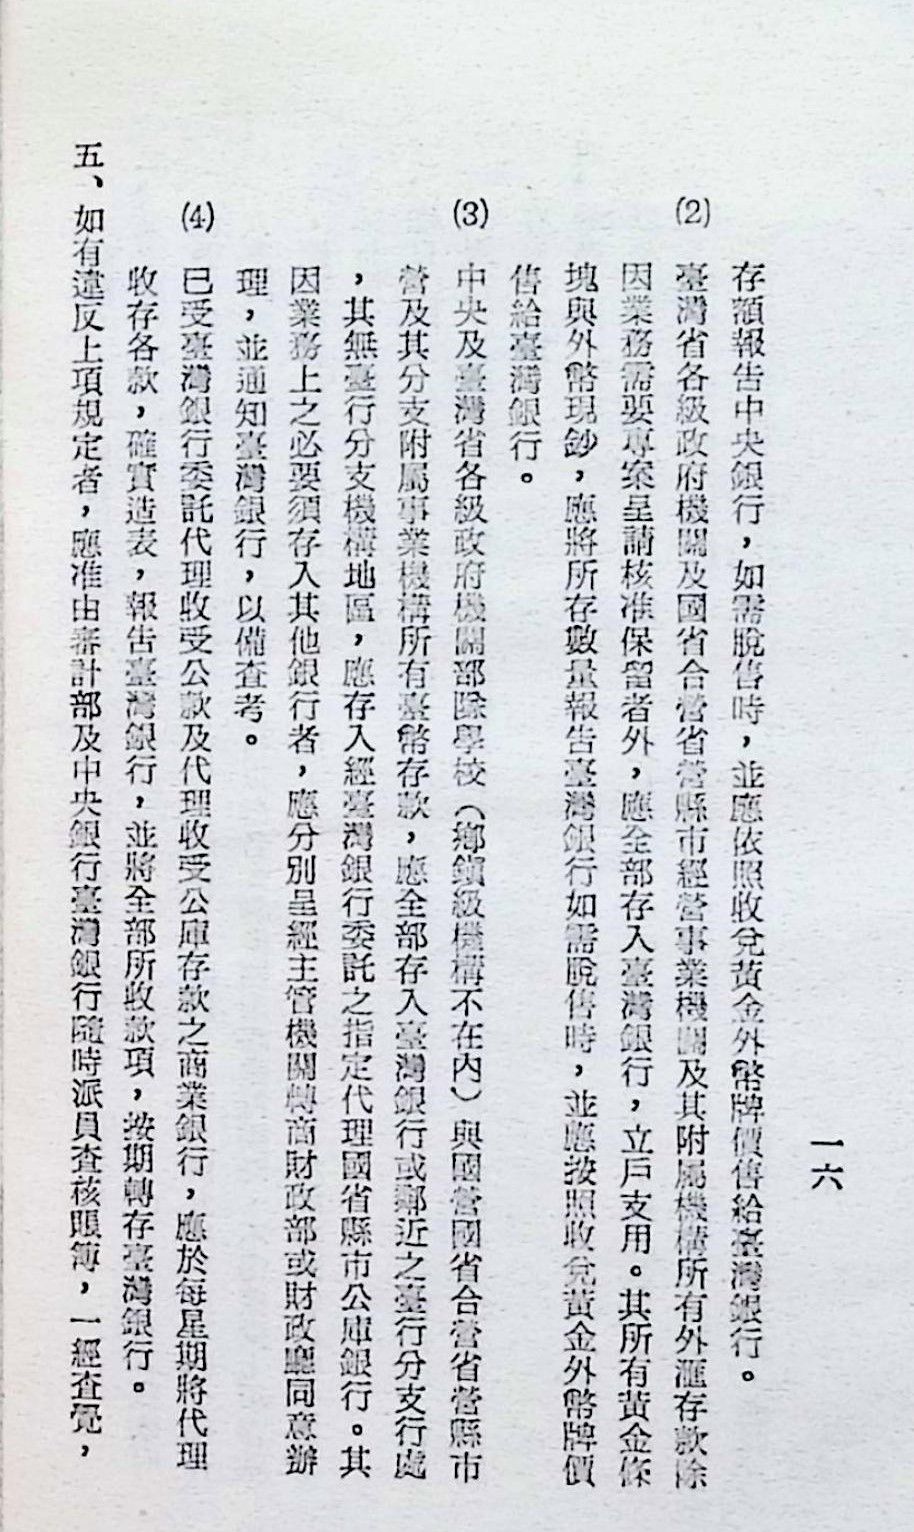 一六
存額報告中央銀行，如需脫售時，並應依照收兌黃金外幣牌價售給臺灣銀行。
(2)臺灣省各級政府機關及國省合營省營縣市經營事業機關及其附屬機構所有外滙存款除
因業務需要專案呈請核准保留者外，應全部存入臺灣銀行，立戶支用。其所有黃金條
塊與外幣現鈔，應將所存數量報告臺灣銀行如需脫售時，並應按照收兌黃金外幣牌價
售給臺灣銀行。
(3)中央及臺灣省各級政府機關部除學校（鄉鎮級機構不在內）與國營國省合營省營縣市
營及其分支附屬事業機構所有臺幣存款，應全部存入臺灣銀行或鄰近之臺行分支行處
，其無臺行分支機構地區，應存入經臺灣銀行委託之指定代理國省縣市公庫銀行。其
因業務上之必要須存入其他銀行者，應分別呈經主管機關轉商財政部或財政廳同意辦
理，並通知臺灣銀行，以備查考。
(4)已受臺灣銀行委託代理收受公款及代理收受公庫存款之商業銀行，應於每星期將代理
收存各款，確實造表，報告臺灣銀行，並將全部所收款項，按期轉存臺灣銀行。
五、如有違反上項規定者，應准由審計部及中央銀行臺灣銀行隨時派員查核賬簿，一經查覺，